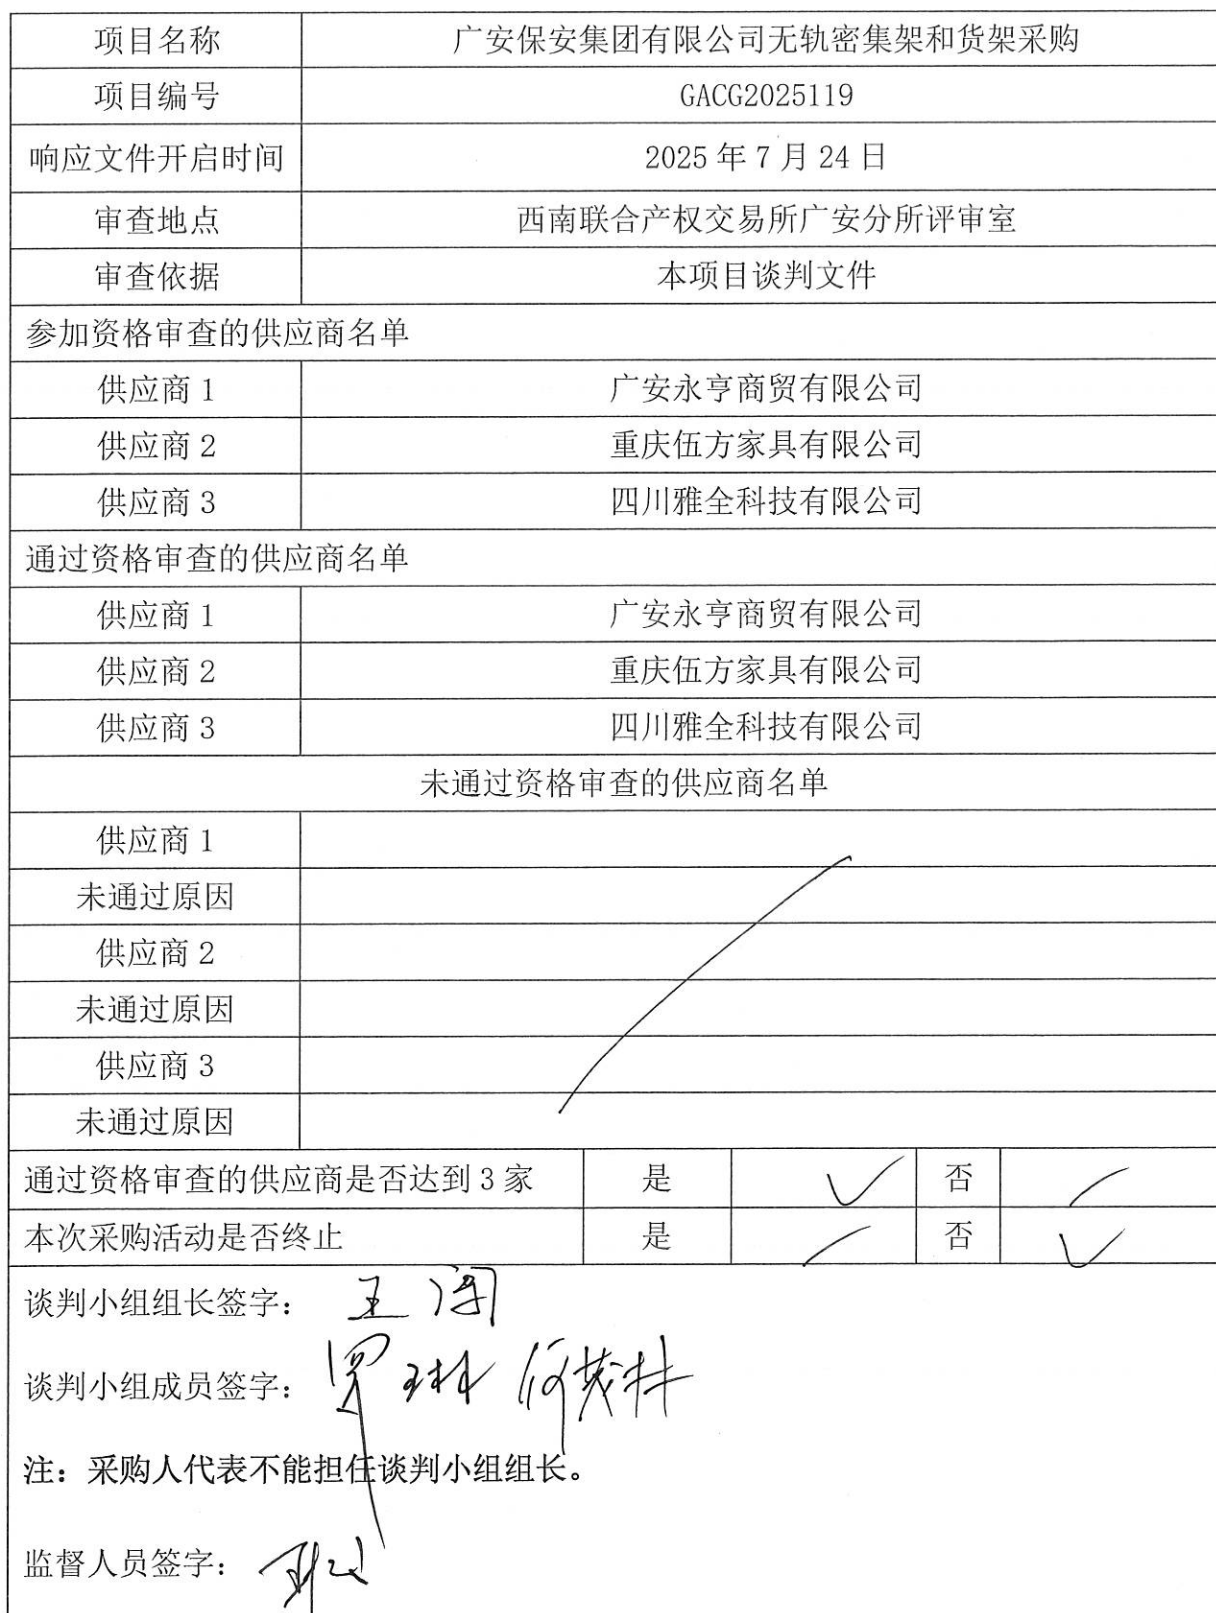 项目名称 广安保安集团有限公司无轨密集架和货架采购
项目编号 GACG2025119
响应文件开启时间 2025年7月24日
审查地点 西南联合产权交易所广安分所评审室
审查依据 本项目谈判文件
参加资格审查的供应商名单
供应商1 广安永亨商贸有限公司
供应商2 重庆伍方家具有限公司
供应商3 四川雅全科技有限公司
通过资格审查的供应商名单
供应商1 广安永亨商贸有限公司
供应商2 重庆伍方家具有限公司
供应商3 四川雅全科技有限公司
未通过资格审查的供应商名单
供应商1
未通过原因
供应商2
未通过原因
供应商3
未通过原因
通过资格审查的供应商是否达到3家 是 ✓ 否
本次采购活动是否终止 是 否 ✓
谈判小组组长签字： 王
谈判小组成员签字： 罗琳 何茂林
注：采购人代表不能担任谈判小组组长。
监督人员签字：